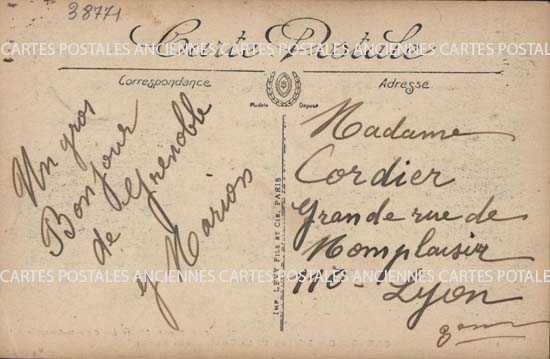 38771
Carte Postale
CARTES POSTALES ANCIENNES CARTES POSTALES ANCIENNES CARTES POSTALES ANCIENNES
Correspondance
Adresse
Modèle Déposé
Un gros
Bonjour
de Grenoble
Marion
IMP. LEVY FILS ET CIE. PARIS
Madame
Cordier
Grande rue de
Momplaisir
110 - Lyon
CARTES POSTALES ANCIENNES CARTES POSTALES ANCIENNES CARTES POSTALES ANCIENNES